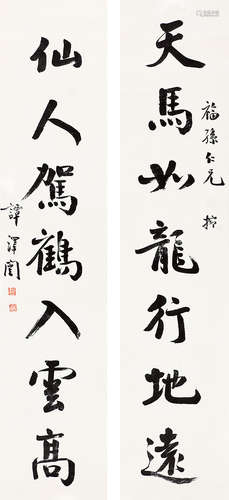 天馬如龍行地遠
福孫仁兄
仙人駕鶴入雲高
譚澤闓